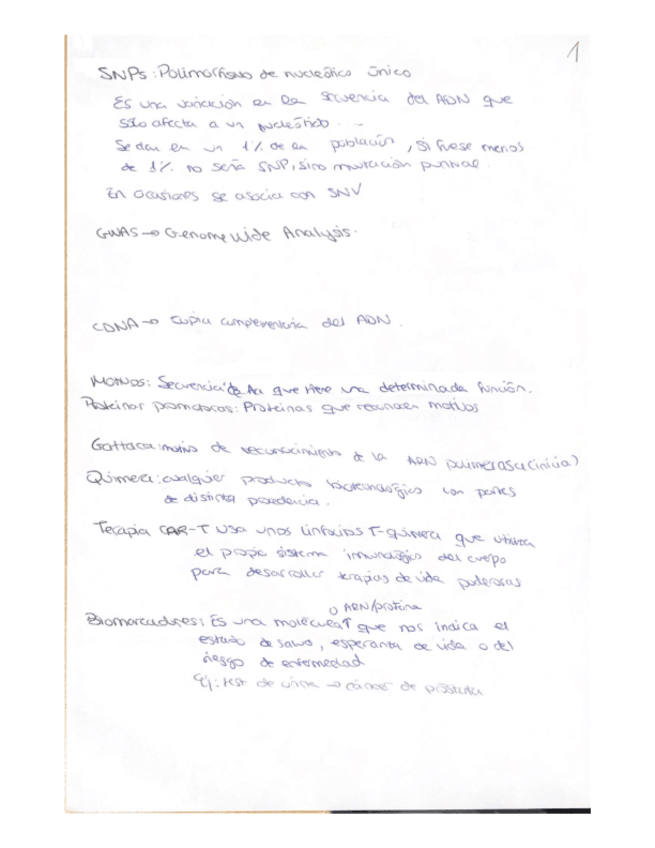 1
SNPs: Polimorfismo de nucleótico único
Es una variación en la secuencia del ADN que
sólo afecta a un nucleótido.
Se dan en un 1% de la población, si fuese menos
de 1% no sería SNP, sino mutación puntual.
En ocasiones se asocia con SNV
GWAS → Genome Wide Analysis.
CDNA → copia complementaria del ADN.
Motivos: Secuencia de Aa que tiene una determinada función.
Proteinas promotoras: Proteinas que reconocen motivos
Gattaca: motivo de reconocimiento de la ARN polimerasa (inicia)
Quimera: cualquier producto biotecnológico con partes
de distinta procedencia.
Terapia CAR-T usa unos linfocitos T-quimera que utiliza
el propio sistema inmunológico del cuerpo
para desarrollar terapias de vida poderosas
o ARN/proteína
Biomarcadores: Es una molécula que nos indica el
estado de salud, esperanza de vida o del
riesgo de enfermedad
Ej: test de orina → cáncer de próstata